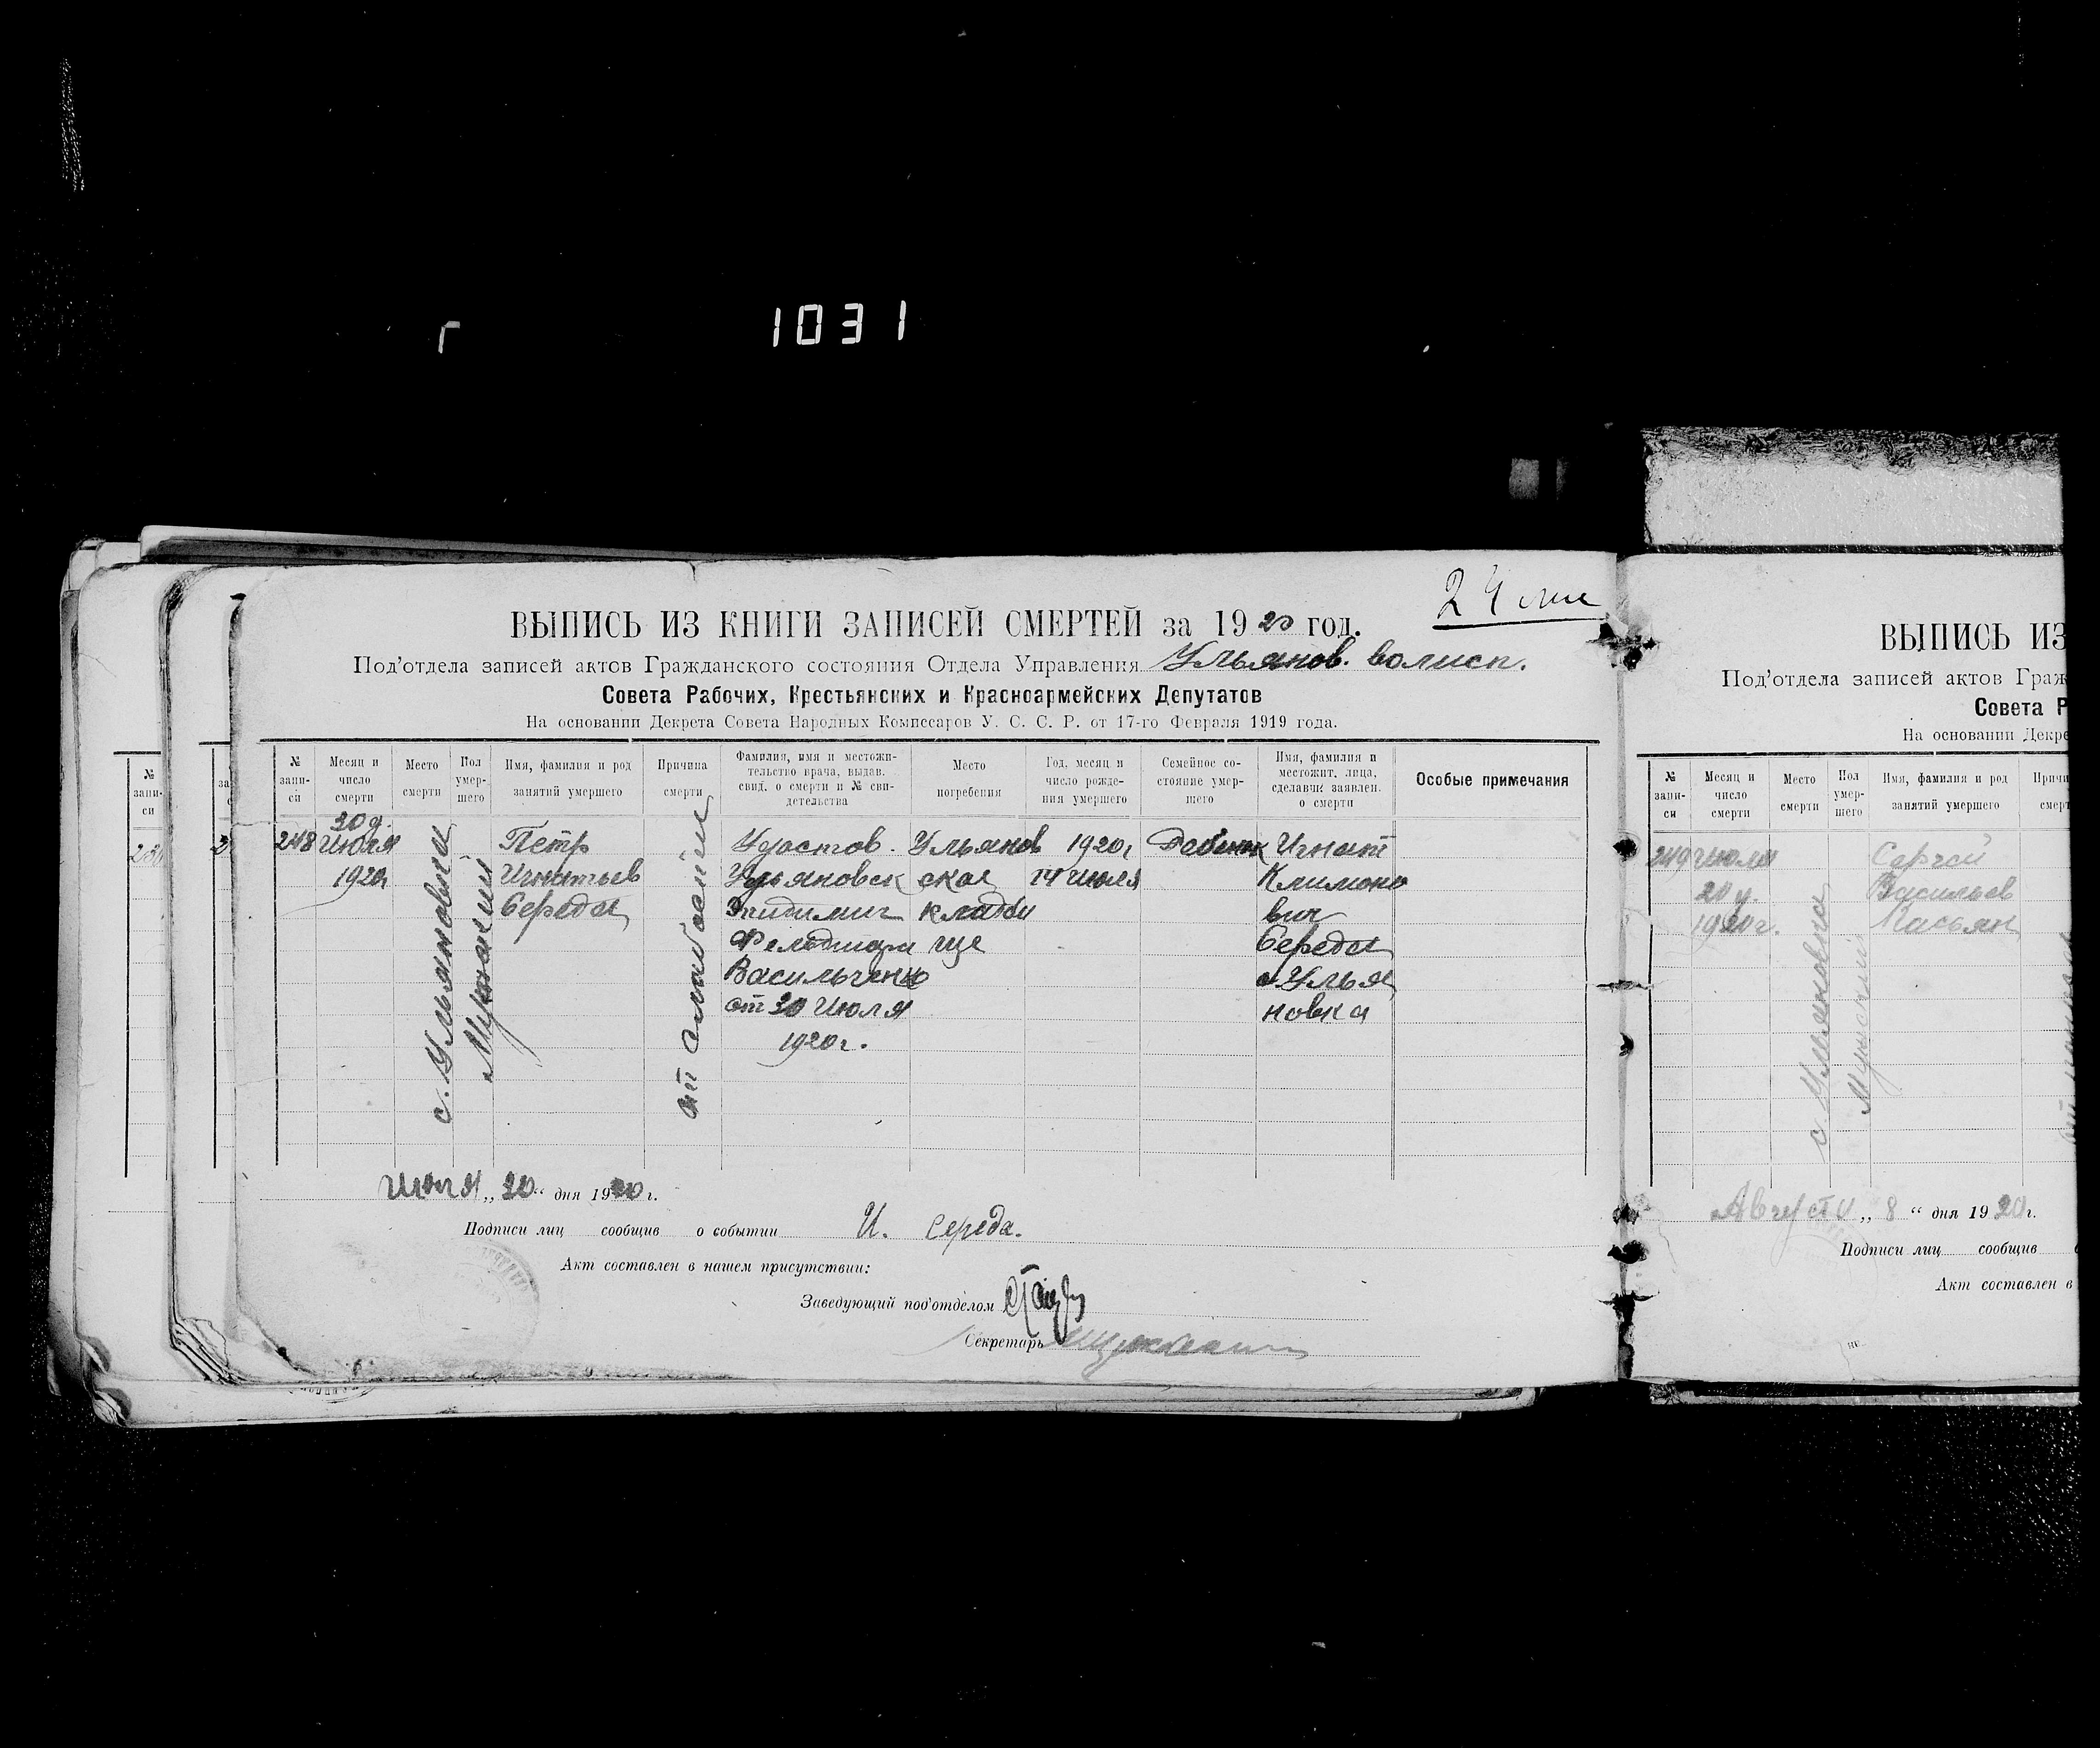 1031
24
ВЫПИСЬ ИЗ КНИГИ ЗАПИСЕЙ СМЕРТЕЙ за 1920 год.
Под'отдела записей актов Гражданского состояния Отдела Управления Ульянов. волисп.
Совета Рабочих, Крестьянских и Красноармейских Депутатов
На основании Декрета Совета Народных Комиссаров У. С. С. Р. от 17-го Февраля 1919 года.
№ запи-
си
Месяц и
число
смерти
Место
смерти
Пол
умер-
шего
Имя, фамилия и род
занятий умершего
Причина
смерти
Фамилия, имя и местожи-
тельство врача, выдав.
свид. о смерти и № сви-
детельства
Место
погребения
Год, месяц и
число рожде-
ния умершего
Семейное со-
стояние умер-
шего
Имя, фамилия и
местожит. лица,
сделавш заявлен.
о смерти
Особые примечания
248
30 д.
Июля
1920г
с. Ульяновка
Мужский
Петр
Игнатьев
Середа
от слабости
Участков.
Ульяновск
Эпидемич
Фельдшера
Васильченко
от 30 Июля
1920 г.
Ульянов
ское
кладби
ще
1920г
14 Июля
Ребенок
Игнат
Климоно
вич
Середа
с Улья
новка
Июля „ 30 “ дня 1920 г.
Подписи лиц сообщив о событии И. Середа.
Акт составлен в нашем присутствии:
Заведующий под'отделом
Секретарь
ВЫПИСЬ ИЗ
Под'отдела записей актов Граж
Совета Р
На основании Декре
№
запи-
си
Месяц и
число
смерти
Место
смерти
Пол
умер-
шего
Имя, фамилия и род
занятий умершего
Причи
смерт
249
Июля
20 д.
1920г.
с. Ульяновка
Мужский
Сергей
Васильев
Касьян
Августа „ 8 “ дня 1920г.
Подписи лиц сообщив
Акт составлен в
№
запи-
си